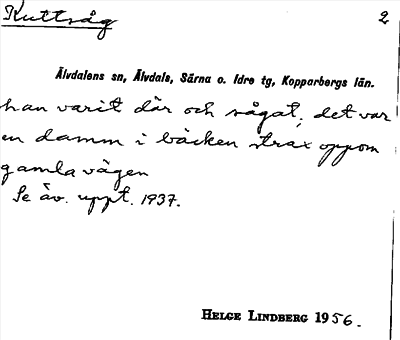 Kuttsåg 2
Älvdalens sn, Älvdals, Särna o. Idre tg, Kopparbergs län.
han varit där och sågat; det var
en damm i bäcken strax oppom
gamla vägen
Se äv. uppt. 1937.
HELGE LINDBERG 1956.